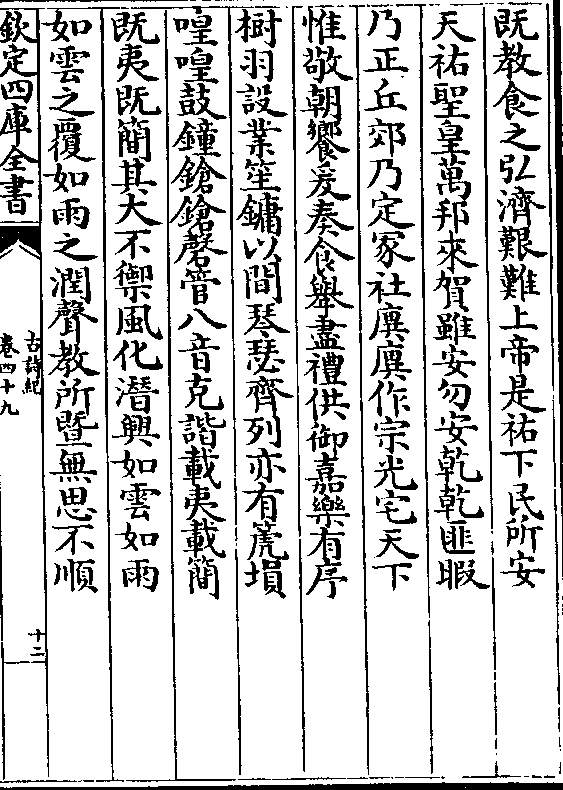 既教食之弘濟艱難上帝是祐下民所安
天祐聖皇萬邦來賀雖安勿安乾乾匪暇
乃正丘郊乃定冢社廙廙作宗光宅天下
惟敬朝饗爰奏食舉盡禮供御嘉樂有序
樹羽設業笙鏞以間琴瑟齊列亦有篪塤
喤喤鼓鐘鎗鎗磬管八音克諧載夷載簡
既夷既簡其大不禦風化潛興如雲如雨
如雲之覆如雨之潤聲教所暨無思不順
欽定四庫全書
古詩紀
卷四十九
十二